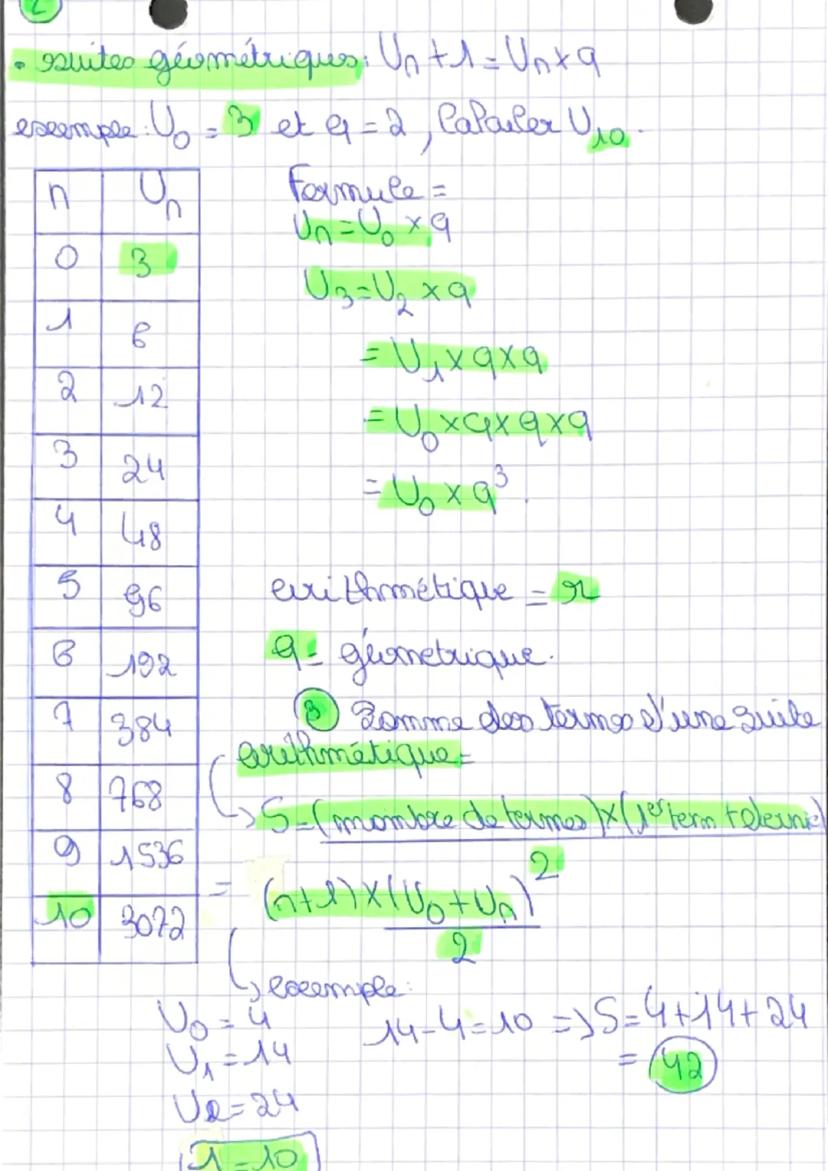 2
• suites géométriques: Un+1 = Un x q
exemple: U0 = 3 et q = 2, Calculer U10.
n Un
0 3
1 6
2 12
3 24
4 48
5 96
6 192
7 384
8 768
9 1536
10 3072
Formule =
Un = U0 x q
U3 = U2 x q
= U1 x q x q
= U0 x q x q x q
= U0 x q³.
arithmétique = r
q = géometrique.
3 Somme des termes d'une suite
arithmétique =
↳ S = (nombre de termes) x (1er term + dernie)
2
= (n+1) x (U0 + Un)
2
↳ exemple:
U0 = 4
U1 = 14
U2 = 24
14-4=10 => S = 4+14+24
= 42
r = 10